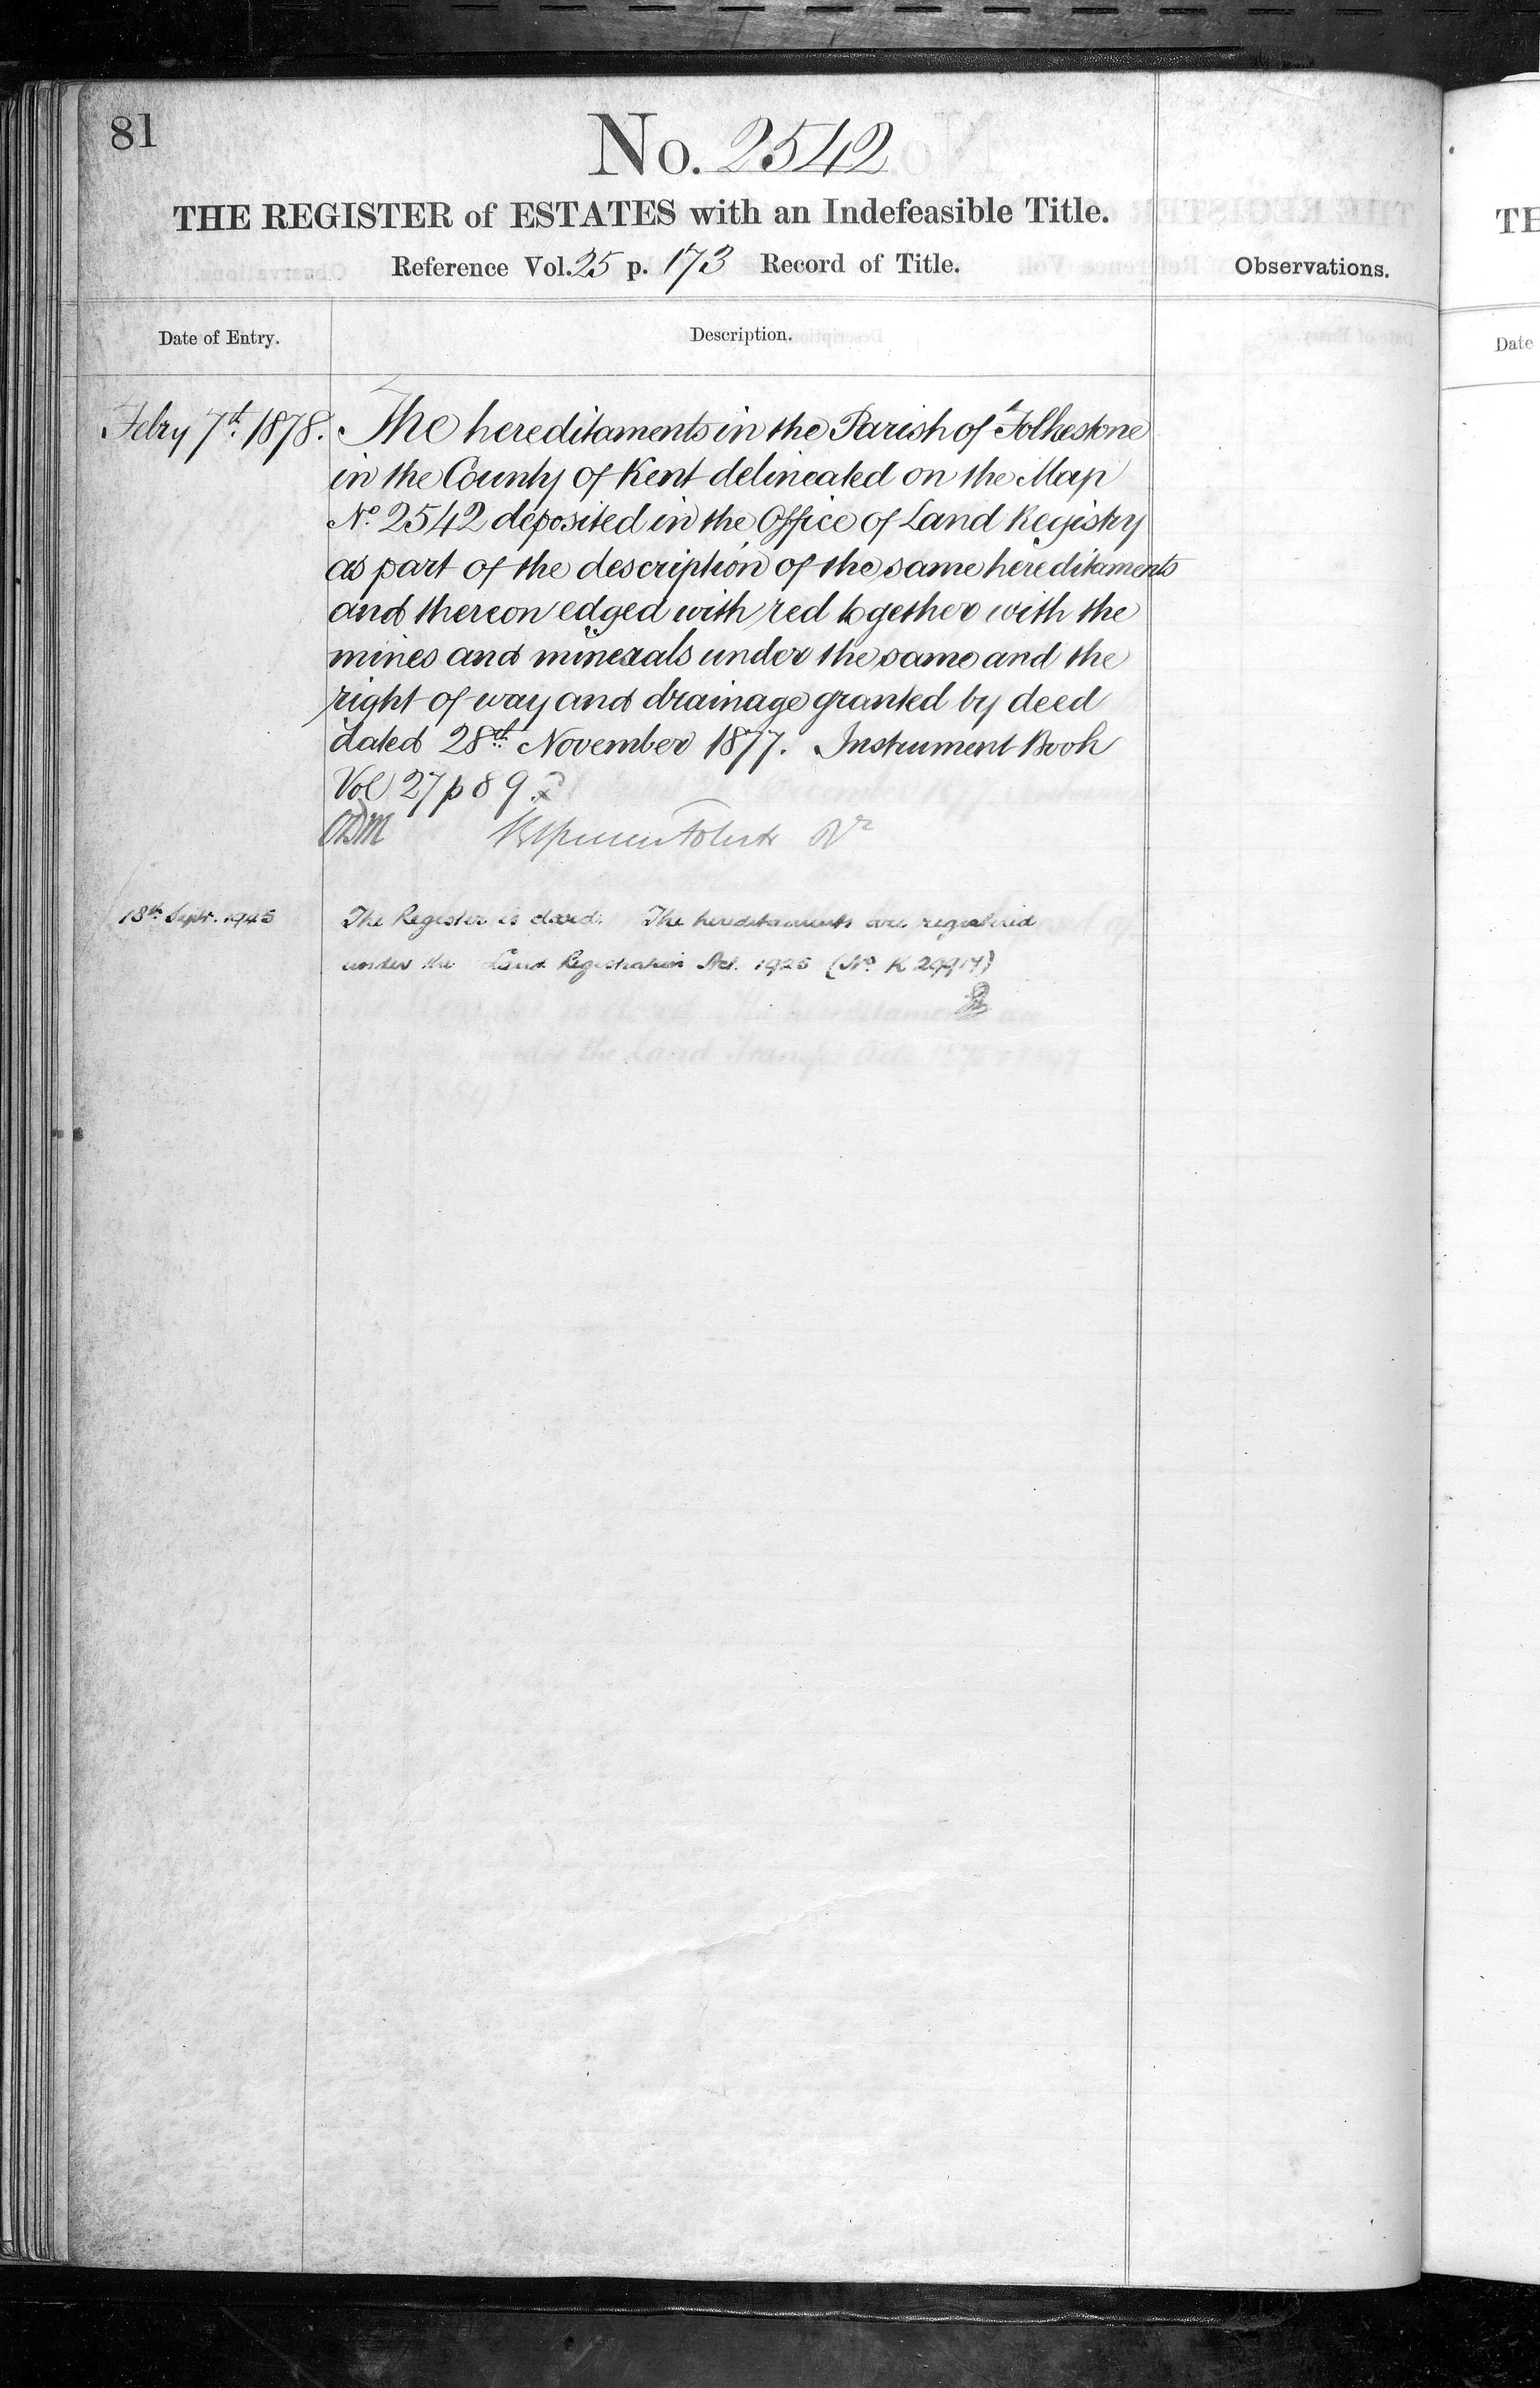 81
No. 2542
THE REGISTER of ESTATES with an Indefeasible Title.
Reference Vol. 25 p. 173 Record of Title.
Observations.
Date of Entry.
Description.
Febry 7th. 1878. The hereditaments in the Parish of Folkestone
in the County of Kent delineated on the Map
No. 2542 deposited in the Office of Land Registry
as part of the description of the same hereditaments
and thereon edged with red together with the
mines and minerals under the same and the
right of way and drainage granted by deed
dated 28th November 1877. Instrument Book
Vol 27 p 89.
18th Septr. 1945 The Register is closed. The hereditaments are registered
under the Land Registration Act. 1925 (No. K 29917)
TH
Date